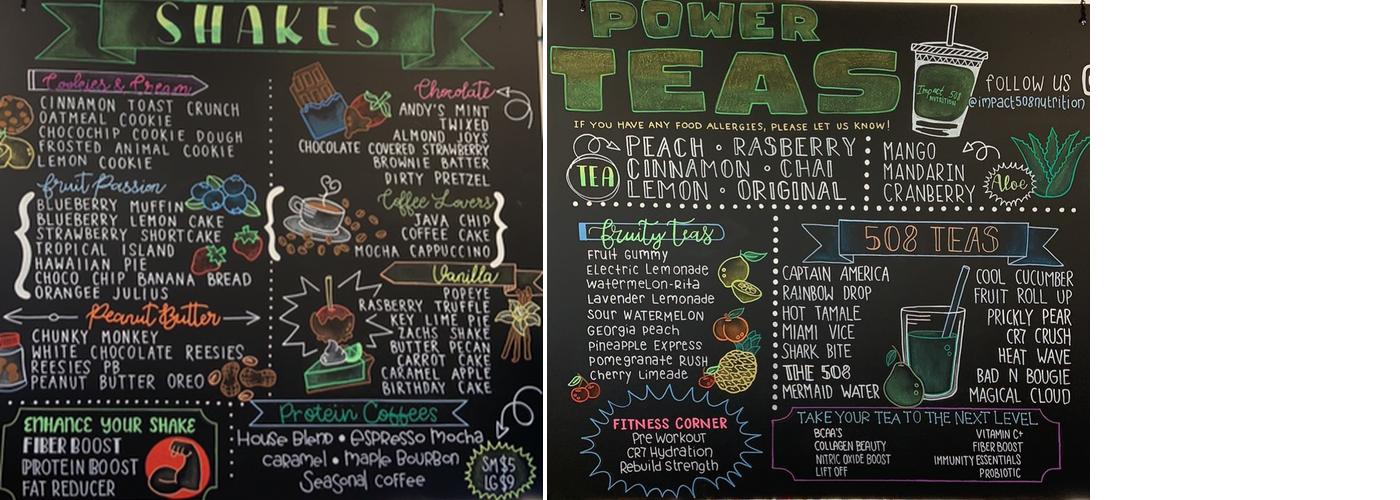 SHAKES
Cookies & Cream
CINNAMON TOAST CRUNCH
OATMEAL COOKIE
CHOCOCHIP COOKIE DOUGH
FROSTED ANIMAL COOKIE
LEMON COOKIE
Fruit Passion
BLUEBERRY MUFFIN
BLUEBERRY LEMON CAKE
STRAWBERRY SHORTCAKE
TROPICAL ISLAND
HAWAIIAN PIE
CHOCO CHIP BANANA BREAD
ORANGEE JULIUS
Peanut Butter
CHUNKY MONKEY
WHITE CHOCOLATE REESIES
REESIES PB
PEANUT BUTTER OREO
ENHANCE YOUR SHAKE
FIBER BOOST
PROTEIN BOOST
FAT REDUCER
Chocolate
ANDY'S MINT
TWIXED
ALMOND JOYS
CHOCOLATE COVERED STRAWBERRY
BROWNIE BATTER
DIRTY PRETZEL
Coffee Lovers
JAVA CHIP
COFFEE CAKE
MOCHA CAPPUCCINO
Vanilla
POPEYE
RASBERRY TRUFFLE
KEY LIME PIE
ZACHS SHAKE
BUTTER PECAN
CARROT CAKE
CARAMEL APPLE
BIRTHDAY CAKE
Protein Coffees
House Blend • ESPRESSO Mocha
caramel • Maple Bourbon
Seasonal coffee
SM $5
LG $9
POWER
TEAS
Impact 508
NUTRITION
FOLLOW US
@impact508nutrition
IF YOU HAVE ANY FOOD ALLERGIES, PLEASE LET US KNOW!
TEA
PEACH • RASBERRY
CINNAMON • CHAI
LEMON • ORIGINAL
MANGO
MANDARIN
CRANBERRY
Aloe
Fruity Teas
Fruit Gummy
Electric Lemonade
Watermelon-Rita
Lavender Lemonade
Sour WATERMELON
Georgia Peach
Pineapple Express
Pomegranate RUSH
Cherry Limeade
FITNESS CORNER
Pre Workout
CR7 Hydration
Rebuild Strength
508 TEAS
CAPTAIN AMERICA
RAINBOW DROP
HOT TAMALE
MIAMI VICE
SHARK BITE
THE 508
MERMAID WATER
COOL CUCUMBER
FRUIT ROLL UP
PRICKLY PEAR
CR7 CRUSH
HEAT WAVE
BAD N BOUGIE
MAGICAL CLOUD
TAKE YOUR TEA TO THE NEXT LEVEL
BCAA'S
COLLAGEN BEAUTY
NITRIC OXIDE BOOST
LIFT OFF
VITAMIN C+
FIBER BOOST
IMMUNITY ESSENTIALS
PROBIOTIC